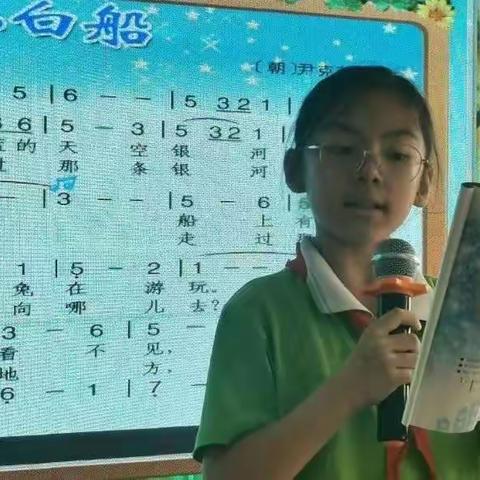 白船
〔朝〕尹克
5 | 6 - - | 5 32 1 |
6 6 | 5 - 3 | 5 32 1 |
的 天 空 银 河
那 条 银 河
- | 3 - - | 5 - 6 |
船 上 有
走 过
1 | 5 - 2 | 1 - -
兔 在 游 玩。
向 哪 儿 去?
3 - 6 | 5 -
看 不 见,
地 方,
6 - 1 | 7 -